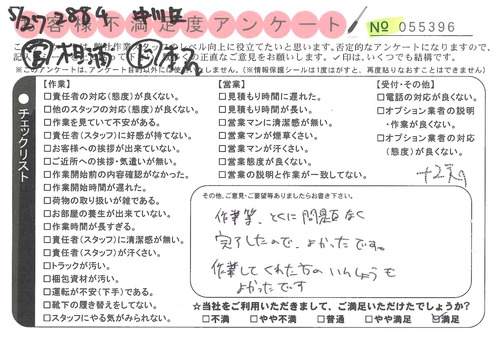 5/27 2884 中川区
お客様不満足度アンケート
№ 055396
このアンケートは、弊社作業スタッフのレベル向上に役立てたいと思います。否定的なアンケートになりますので、
ご意見をお願いします。✓印は、いくつでも結構です。
※このアンケートは、アンケート目的以外には
(※情報保護シールは1度がすと、再度貼りなおすことはできません)
チェックリスト
【作業】
□責任者の対応(態度)が良くない。
□他のスタッフの対応(態度)が良くない。
□作業を見ていて不安がある。
□責任者(スタッフ)に好感が持てない。
□お客様への挨拶が出来ていない。
□ご近所への挨拶・気遣いが無い。
□作業開始前の内容確認がなかった。
□作業開始時間が遅れた。
□荷物の取り扱いが雑である。
□お部屋の養生が出来ていない。
□作業時間が長すぎる。
□責任者(スタッフ)に清潔感が無い。
□責任者(スタッフ)が汗くさい。
□トラックが汚い。
□梱包資材が汚い。
□運転が不安(下手)である。
□靴下の履き替えをしてない。
□スタッフにやる気がみられない。
【営業】
□見積もり時間に遅れた。
□見積もり時間が長い。
□営業マンに清潔感が無い。
□営業マンが煙草くさい。
□営業マンが汗くさい。
□営業態度が良くない。
□営業の説明と作業が一致してない。
【受付・その他】
□電話の対応が良くない。
□オプション業者の説明
・作業が良くない。
□オプション業者の対応
(態度)が良くない。
その他、ご意見・ご要望等ありましたらお書き下さい。
作業等、とくに問題なく
完了したので、よかったです。
作業してくれた方のいんしょうも
よかったです
☆当社をご利用いただきまして、ご満足いただけたでしょうか?
□不満 □やや不満 □普通 □やや満足 ☑満足